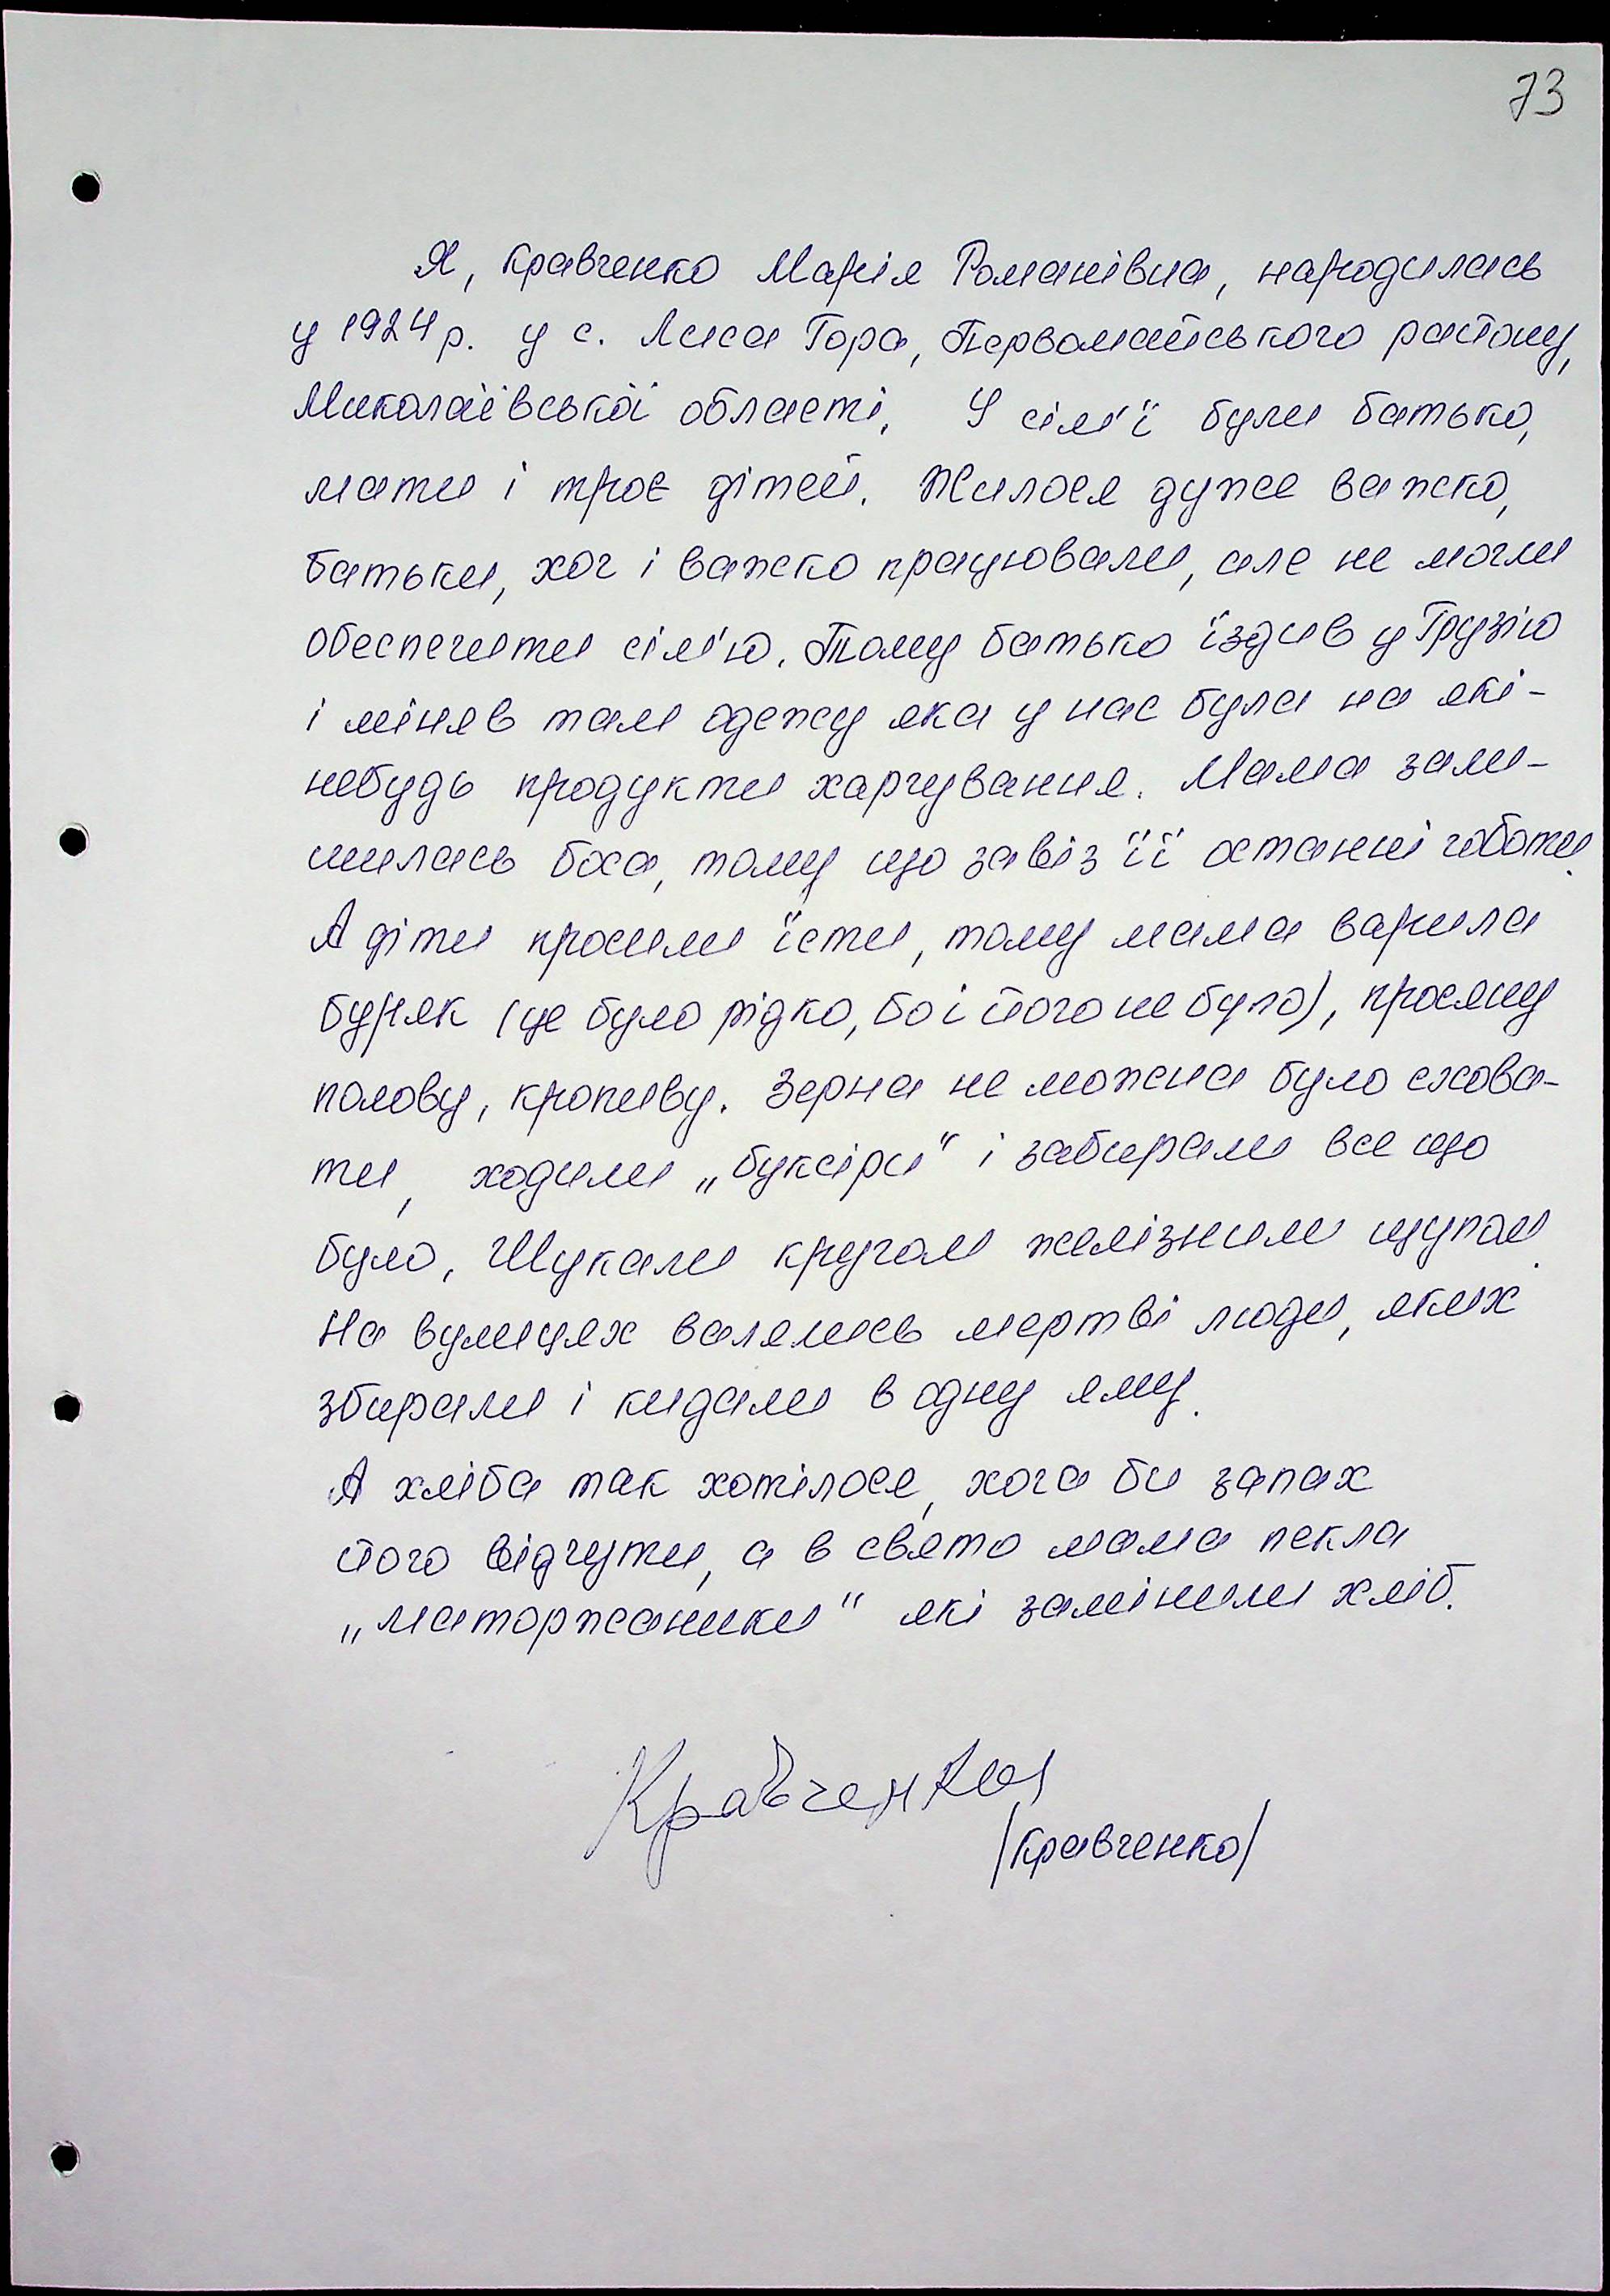 73
Я, Кравченко Марія Романівна, народилась
у 1924 р. у с. Лиса Гора, Первомайського району,
Миколаївської області. У сім'ї були батько,
мати і троє дітей. Жилося дуже важко,
батьки, хоч і важко працювали, але не могли
обеспечити сім'ю. Тому батько їздив у Грузію
і міняв там одежу яка у нас була на які-
небудь продукти харчування. Мама зали-
шилась боса, тому що завіз її останні чоботи.
А діти просили їсти, тому мама варила
буряк (це було рідко, бо і його не було), просяну
полову, кропиву. Зерна не можна було схова-
ти, ходили „буксіри" і забирали все що
було, Шукали кругом желізним щупом.
На вулицях валялись мертві люди, яких
збирали і кидали в одну яму.
А хліба так хотілося, хоча би запах
його відчути, а в свято мама пекла
„маторжаники" які замінили хліб.
Кравченко
/Кравченко/